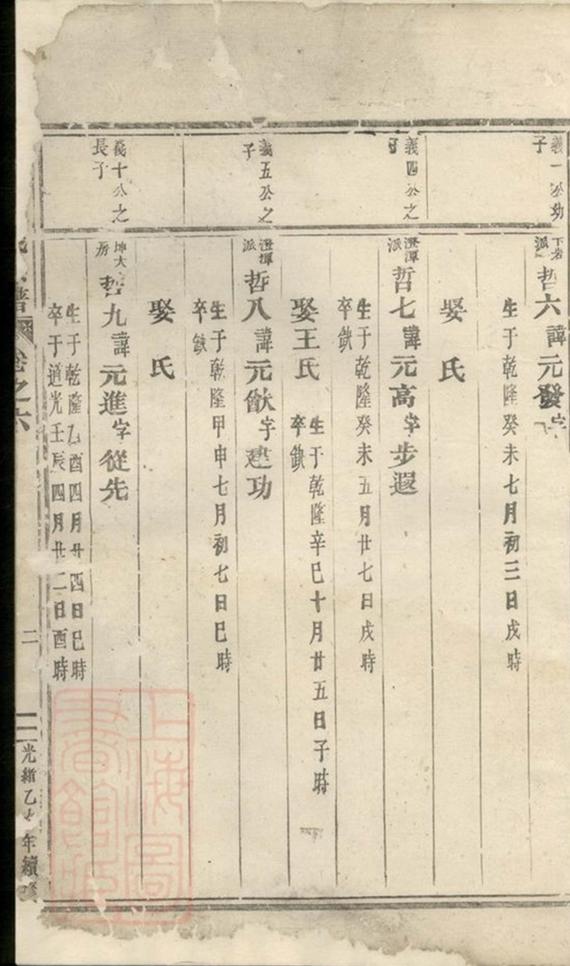 義一公幼子
下岩派
哲六諱元發字
生于乾隆癸未七月初三日戌時
娶氏
義四公之子
澄潭派
哲七諱元高字步遐
生于乾隆癸未五月廿七日戌時
卒缺
娶王氏
生于乾隆辛巳十月廿五日子時
卒缺
義五公之子
澄潭派
哲八諱元猷字建功
生于乾隆甲申七月初七日巳時
卒缺
娶氏
義十公之長子
坤大房
哲九諱元進字從先
生于乾隆乙酉四月廿四日巳時
卒于道光壬辰四月廿二日酉時
譜
卷之六
二
光緒乙年續修
上海圖書館藏